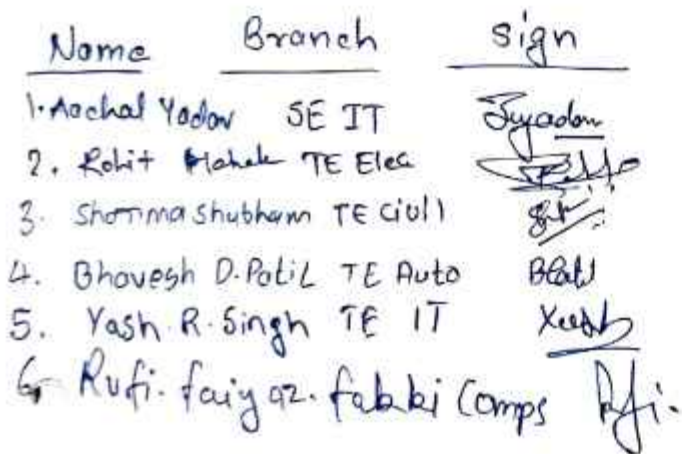 Name Branch Sign
1. Aachal Yadav SE IT
2. Rohit TE Elec
3. Sharma Shubham TE Civil
4. Bhavesh D. Patil TE Auto
5. Yash R. Singh TE IT
6. Rufi. faiyaz. fakki Comps Rufi.